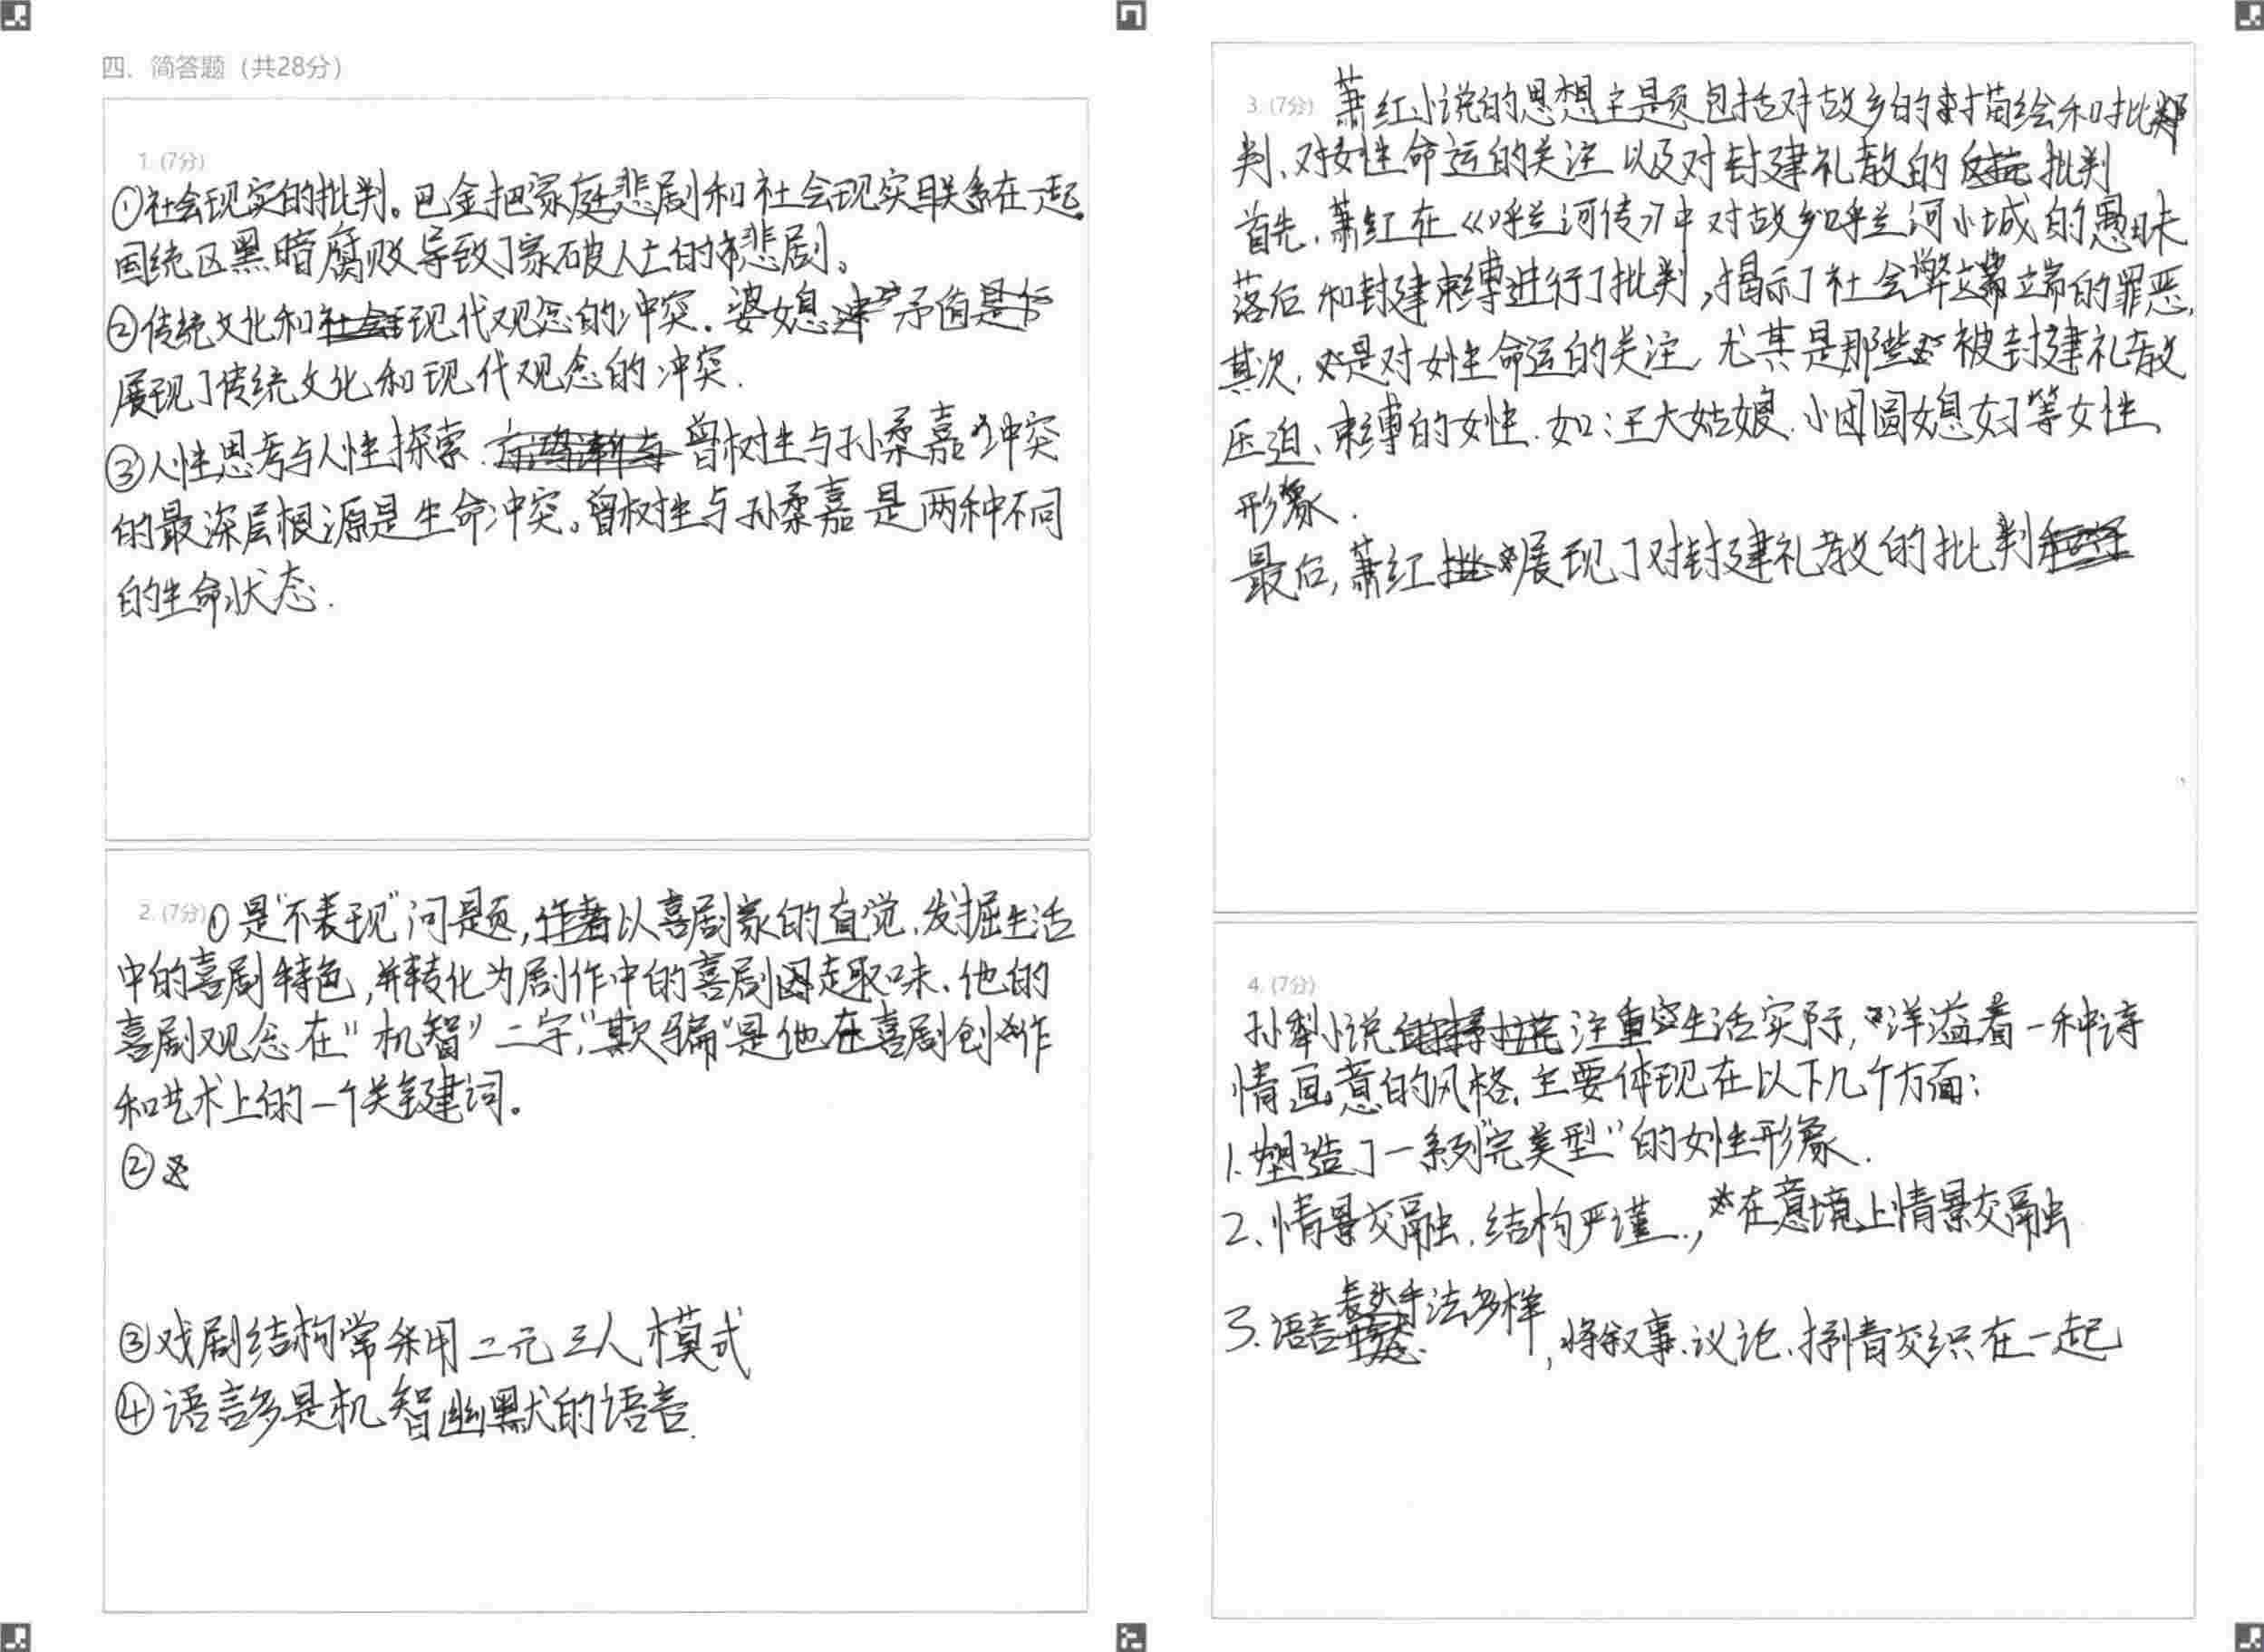 四、简答题（共28分）
1. (7分)
①社会现实的批判。巴金把家庭悲剧和社会现实联系在一起。
国统区黑暗腐败导致了家破人亡的悲剧。
②传统文化和现代观念的冲突。婆媳矛盾
展现了传统文化和现代观念的冲突.
③人性思考与人性探索.曾树生与孙柔嘉冲突
的最深层根源是生命冲突。曾树生与孙柔嘉是两种不同
的生命状态.
2. (7分)①是“不表现”问题,作者以喜剧家的直觉.发掘生活
中的喜剧特色,并转化为剧作中的喜剧趣味.他的
喜剧观念在“机智”二字,“欺骗”是他在喜剧创作
和艺术上的一个关键词。
②
③戏剧结构常采用二元三人模式
④语言多是机智幽默的语言.
3. (7分) 萧红小说的思想主题包括对故乡的描绘和批
判、对女性命运的关注以及对封建礼教的批判
首先,萧红在《呼兰河传》中对故乡呼兰河小城的愚昧
落后和封建束缚进行了批判,揭示了社会弊端的罪恶,
其次,是对女性命运的关注,尤其是那些被封建礼教
压迫、束缚的女性.如:王大姑娘、小团圆媳妇等女性
形象.
最后,萧红展现了对封建礼教的批判
4. (7分)
孙犁小说注重生活实际,洋溢着一种诗
情画意的风格,主要体现在以下几个方面:
1.塑造了一系列“完美型”的女性形象.
2、情景交融.结构严谨.,在意境上情景交融
3.语言表达手法多样,将叙事、议论、抒情交织在一起